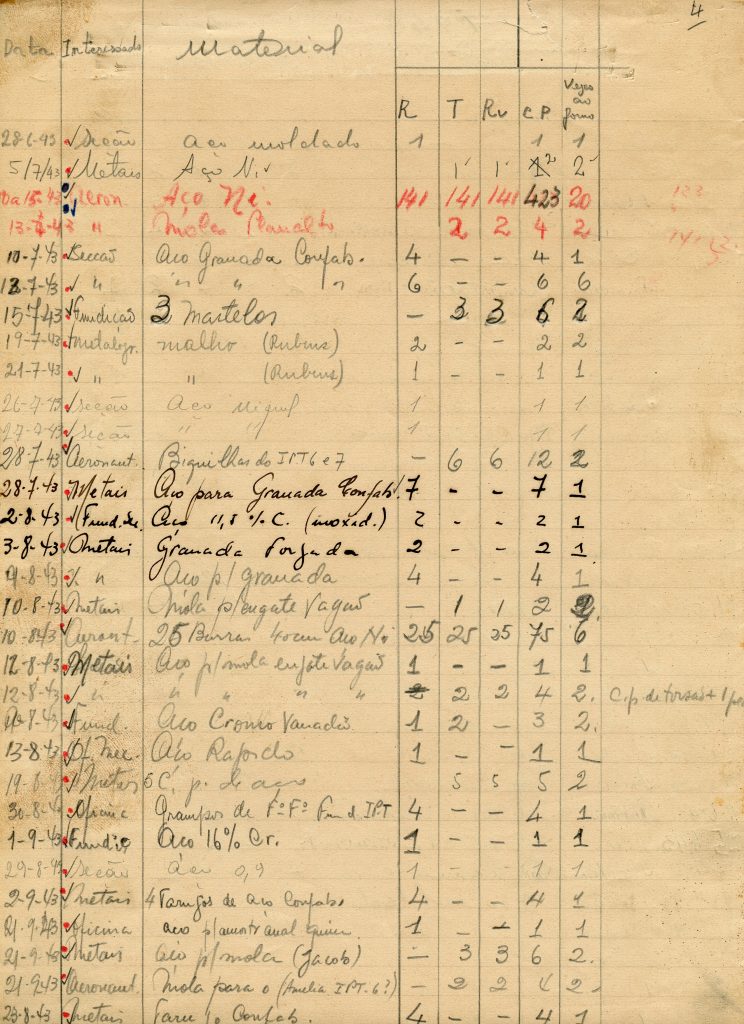 4
Data Interessado Material
R T Rv CP Vezes ao forno
28-6-43 Secção Aço moldado 1 1 1
5/7/43 Metais Aço Ni. 1 1 2 2
Aeron. Aço Ni. 141 141 141 423 20
13-7-43 " Molas 2 2 4 2
10-7-43 Secção Aço Granada Confab. 4 - - 4 1
12-7-43 " " " " 6 - - 6 6
15-7-43 Fundicão 3 Martelos - 3 3 6 2
19-7-43 Metalogr. malho (Rubens) 2 - - 2 2
21-7-43 " " (Rubens) 1 - - 1 1
26-7-43 Secção Aço Miguel 1 1 1
27-7-43 Secão " " 1 1 1
28-7-43 Aeronaut. Biquilhas do IPT 6 e 7 - 6 6 12 2
28-7-43 Metais Aco para Granada Confab. 7 - - 7 1
2-8-43 Aco 11,8 % C. (inoxad.) 2 - - 2 1
3-8-43 Metais Granada Forgada 2 - - 2 1
9-8-43 " Aco p/ granada 4 - - 4 1
10-8-43 Metais Mola p/ engate Vagão - 1 1 2 2
10-8-43 Aeront. 25 Barras 40 cm Aco Ni 25 25 25 75 6
12-8-43 Metais Aco p/ mola engate Vagão 1 - - 1 1
12-8-43 " " " " " 2 2 2 4 2. C.p de torsão + 1 por
8-43 Fund. Aco Cromo Vanadio 1 2 - 3 2.
13-8-43 Of. Mec. Aco Rapido 1 - - 1 1
19-8-43 Metais 5 C. p. de aço 5 5 5 2
30-8-43 Oficina Grampos de Fº Fº Fund. IPT 4 - - 4 1
1-9-43 Fundiç Aco 16% Cr. 1 - - 1 1
29-8-43 Secão Aco 0,9 1 - - 1 1
2-9-43 Metais 4 Tarugos de aco Confab. 4 - - 4 1
21-9-43 Oficina aco p/ 1 - - 1 1
21-9-43 Metais aço p/ mola (Jacob) - 3 3 6 2.
21-9-43 Aeronaut. Mola para o (Amelia IPT-6?) - 2 2 4 2
23-8-43 Metais Taru Confab. 4 - - 4 1